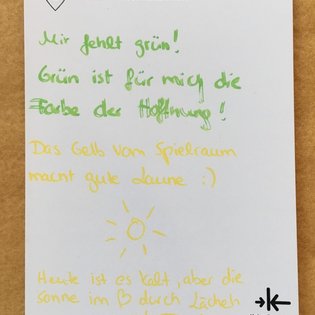 Mir fehlt grün!
Grün ist für mich die
Farbe der Hoffnung!
Das Gelb vom Spielraum
macht gute Laune :)
Heute ist es kalt, aber die
sonne im B durch Lächeln